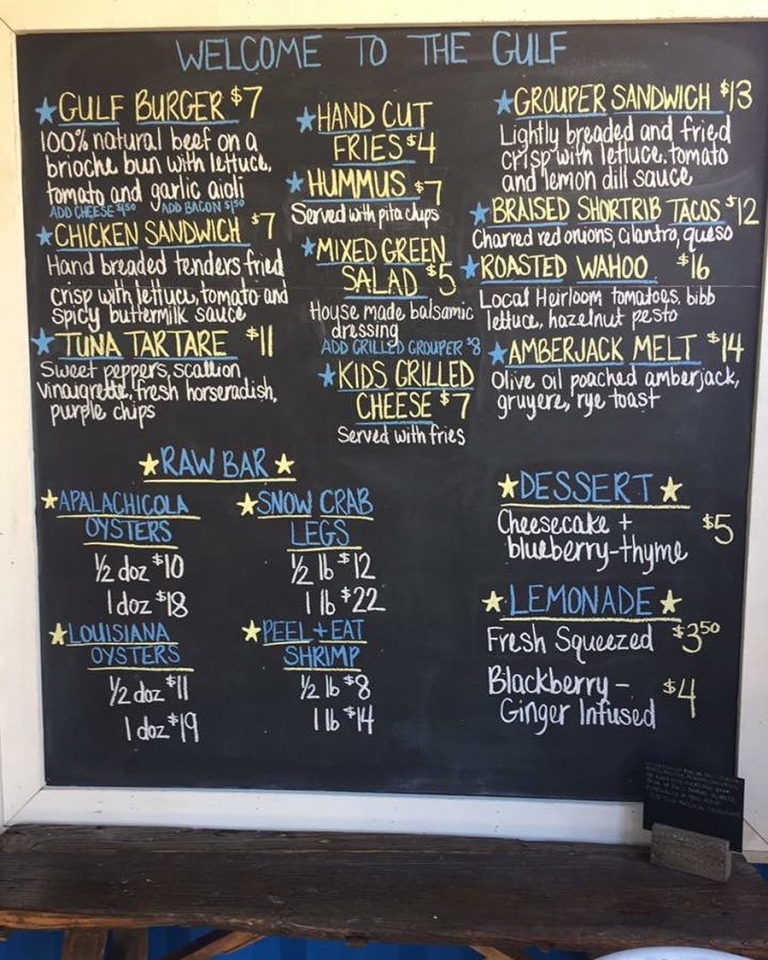 WELCOME TO THE GULF
GULF BURGER $7
100% natural beef on a
brioche bun with lettuce,
tomato and garlic aioli
ADD CHEESE $1.50 ADD BACON $1.50
CHICKEN SANDWICH $7
Hand breaded tenders fried
crisp with lettuce, tomato and
spicy buttermilk sauce
TUNA TARTARE $11
Sweet peppers, scallion
vinaigrette, fresh horseradish,
purple chips
HAND CUT
FRIES $4
HUMMUS $7
Served with pita chips
MIXED GREEN
SALAD $5
House made balsamic
dressing
ADD GRILLED GROUPER $8
KIDS GRILLED
CHEESE $7
Served with fries
GROUPER SANDWICH $13
Lightly breaded and fried
crisp with lettuce, tomato
and lemon dill sauce
BRAISED SHORTRIB TACOS $12
Charred red onions, cilantro, queso
ROASTED WAHOO $16
Local Heirloom tomatoes, bibb
lettuce, hazelnut pesto
AMBERJACK MELT $14
Olive oil poached amberjack,
gruyere, rye toast
RAW BAR
APALACHICOLA
OYSTERS
1/2 doz $10
1 doz $18
LOUISIANA
OYSTERS
1/2 doz $11
1 doz $19
SNOW CRAB
LEGS
1/2 lb $12
1 lb $22
PEEL + EAT
SHRIMP
1/2 lb $8
1 lb $14
DESSERT
Cheesecake + $5
blueberry-thyme
LEMONADE
Fresh Squeezed $3.50
Blackberry - $4
Ginger Infused